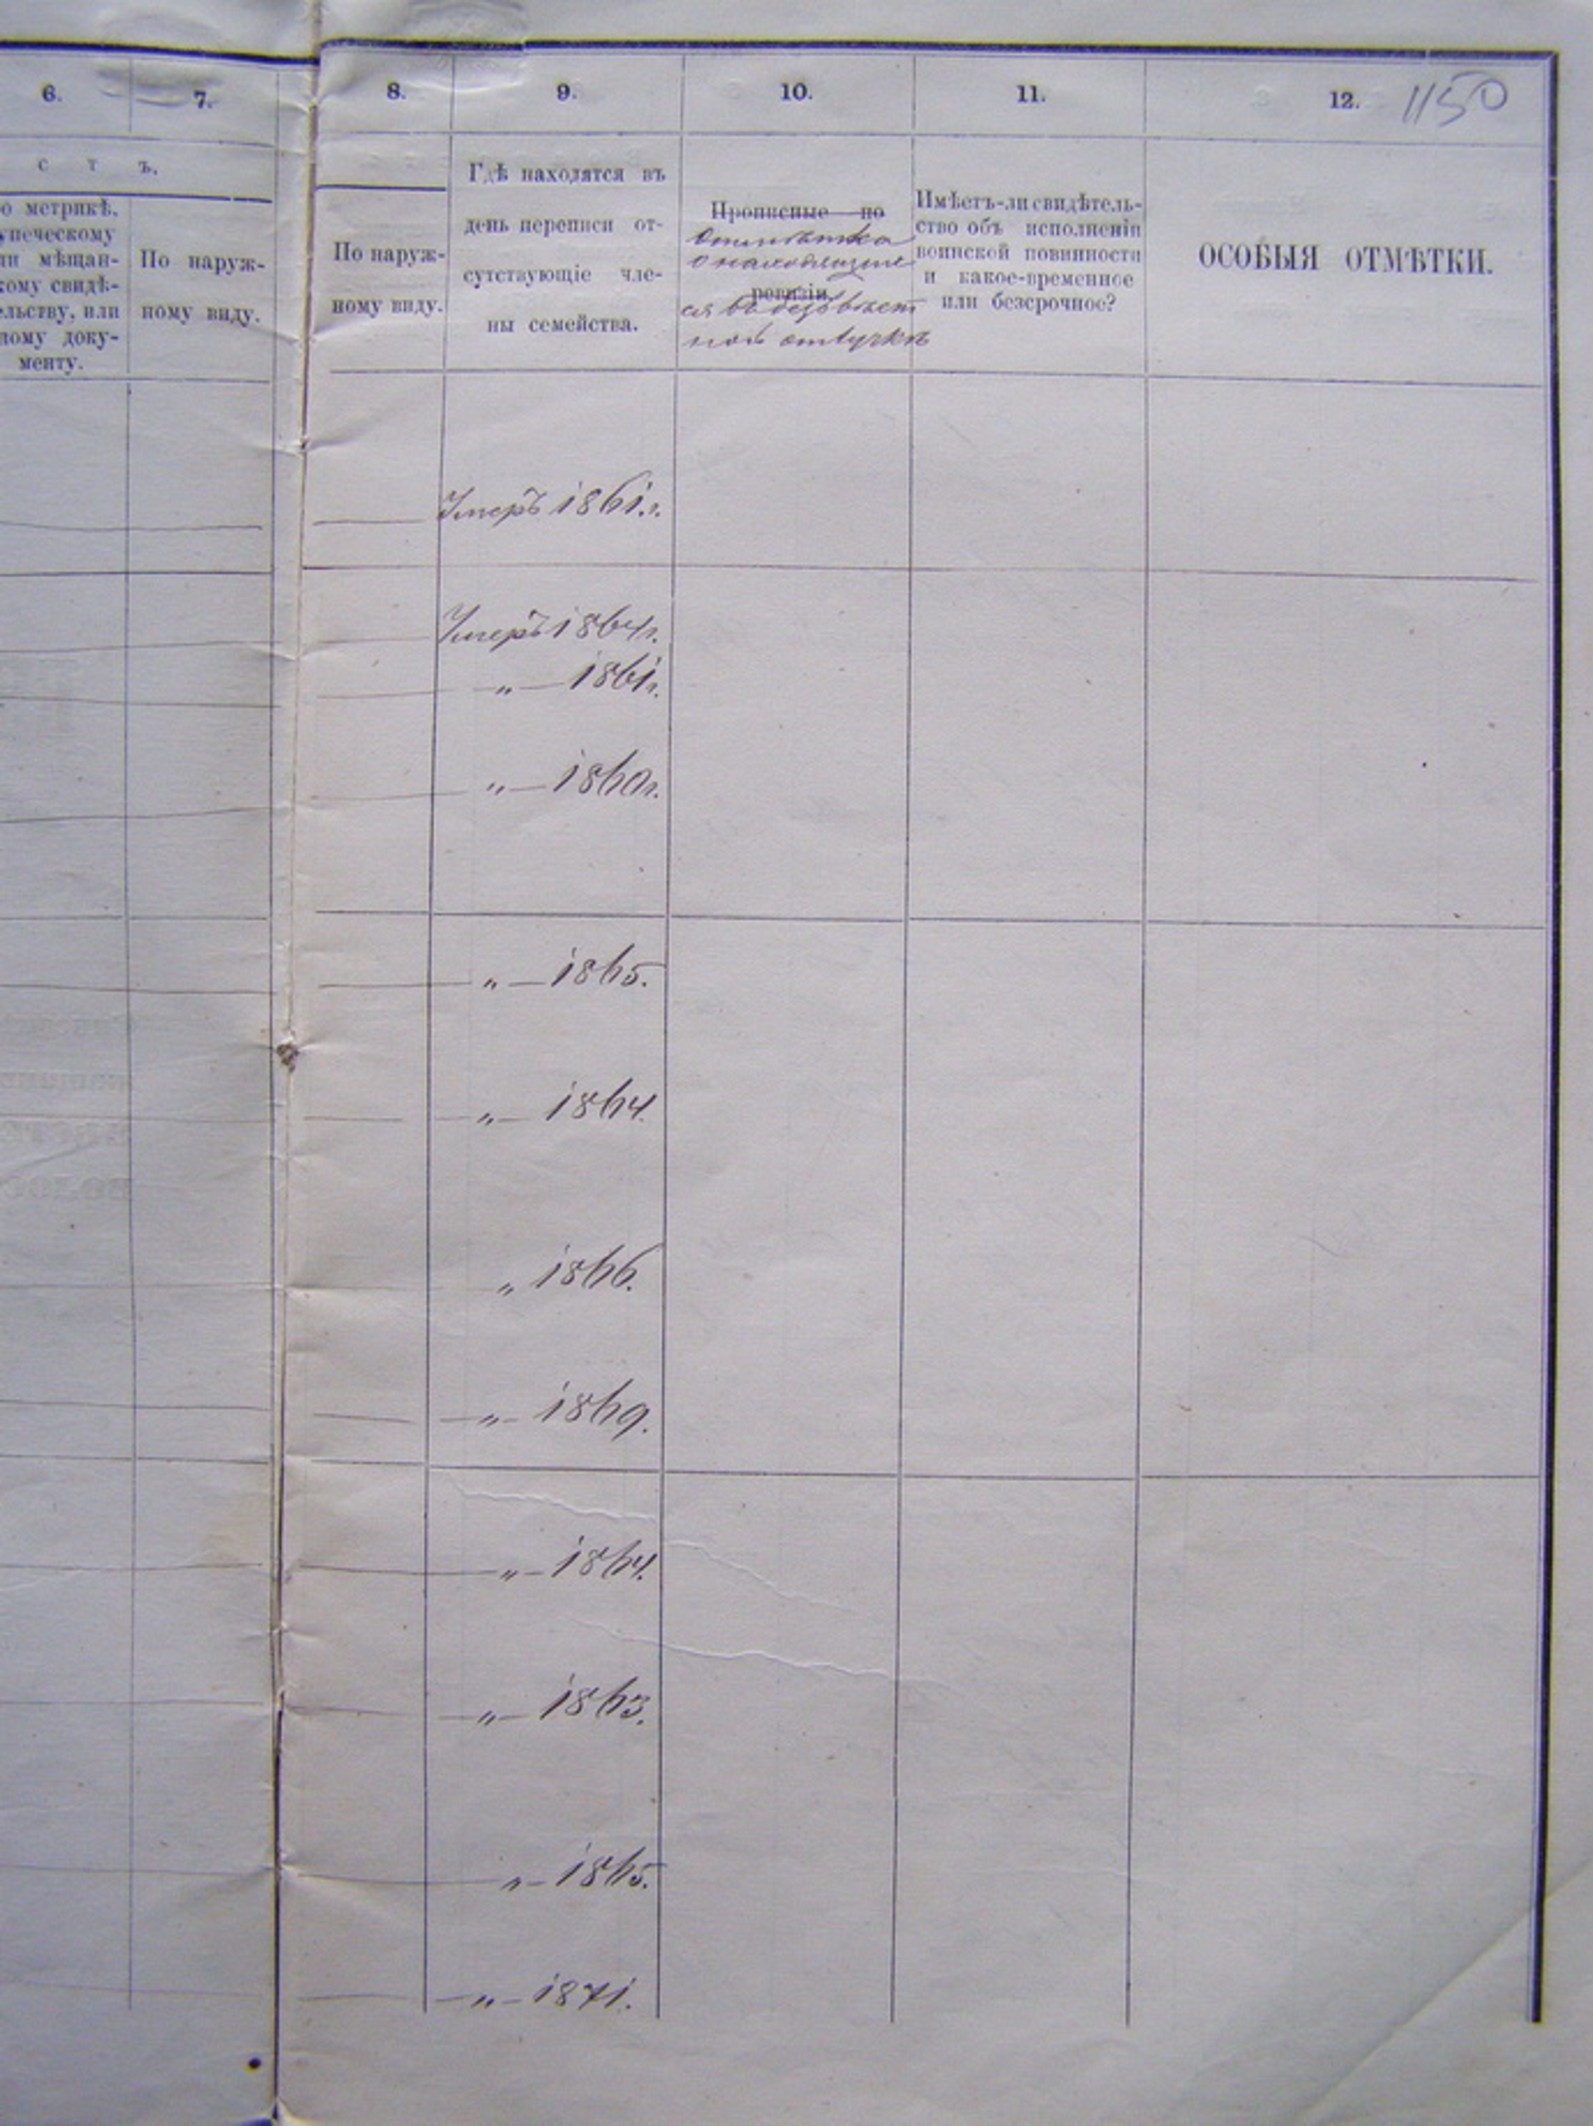 6.
7.
8.
9.
10.
11.
12.
1150
с т ъ.
о метрикѣ,
упеческому
ли мѣщан-
кому свидѣ-
ельству, или
ному доку-
менту.
По наруж-
ному виду.
По наруж-
ному виду.
Гдѣ находятся въ
день переписи от-
сутствующіе чле-
ны семейства.
Прописные по
Отмѣтка
о находящие
ревизіи.
ся въ безъвѣст
ной отлучкѣ
Имѣетъ-ли свидѣтель-
ство объ исполненіи
воинской повинности
и какое-временное
или безсрочное?
ОСОБЫЯ ОТМѢТКИ.
Умеръ 1861 г.
Умеръ 1864 г.
„ — 1861 г.
„ — 1860 г.
„ — 1865.
„ — 1864.
„ 1866.
— „ — 1869.
„ — 1864.
— „ — 1863.
„ — 1865.
— „ — 1871.